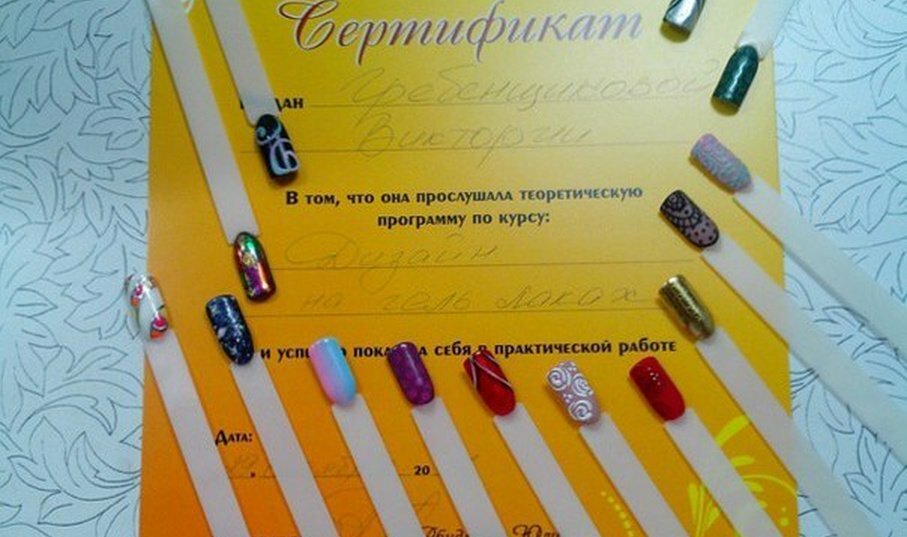 Сертификат
дан Гребенщиковой
Виктории
В том, что она прослушала теоретическую
программу по курсу:
Дизайн
на гель лаках
и себя в практической работе
Дата:
20